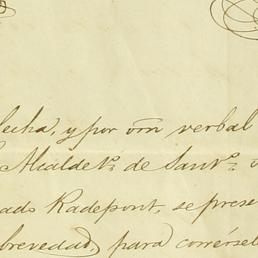 fecha, y por orn verbal
Alcalde 1º. de Santº.
ado Radepont, se prese
brevedad, para corrérsel